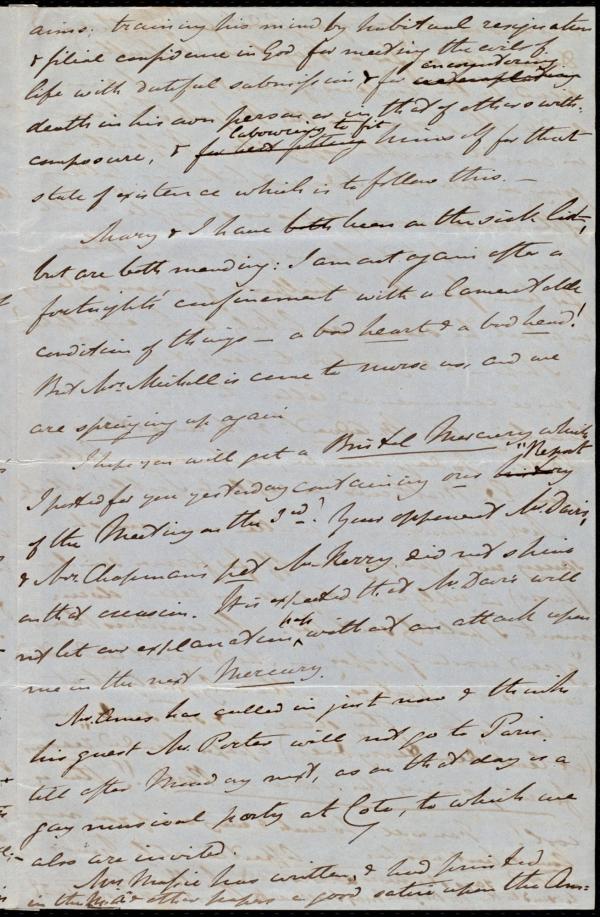 aims; training his mind by habitual resignation
& filial confidence in God for meeting the evils of
life with dutiful submission & for encountering contemplating
death in his own person or in that of others with
composure, & labouring to fit himself for that
state of existence which is to follow this. —
Mary & I have both been on the sick list,
but are both mending: I am out again after a
fortnight's confinement with a lamentable
condition of things — a bad heart & a bad head!
But Mrs. Michell is come to nurse us, and we
are springing up again
I hope you will get a Bristol Mercury which
I posted for you yesterday containing our history "Report
of the Meeting on the 3rd." Your opponent Mr. Davis,
& Mrs. Chapman's pet Mr. Kerry did not shine
on that occasion. It is expected that Mr. Davis will
not let our explanation pass without an attack upon
me in the next Mercury.
Mr. Ames has called in just now & thinks
his guest Mr. Porter will not go to Paris
till after Monday next, as on that day is a
gay musical party at Cote, to which we
also are invited.
Mrs. Massie has written, & had printed
in the & other papers a good satire upon the Am=